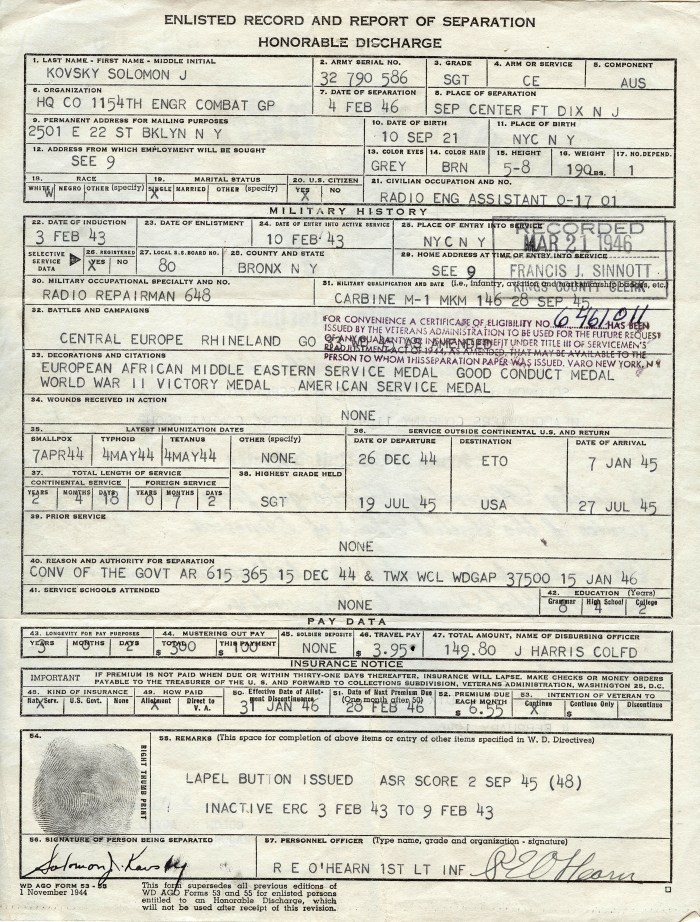 ENLISTED RECORD AND REPORT OF SEPARATION
HONORABLE DISCHARGE
1. LAST NAME - FIRST NAME - MIDDLE INITIAL 2. ARMY SERIAL NO. 3. GRADE 4. ARM OR SERVICE 5. COMPONENT
KOVSKY SOLOMON J 32 790 586 SGT CE AUS
6. ORGANIZATION 7. DATE OF SEPARATION 8. PLACE OF SEPARATION
HQ CO 1154TH ENGR COMBAT GP 4 FEB 46 SEP CENTER FT DIX N J
9. PERMANENT ADDRESS FOR MAILING PURPOSES 10. DATE OF BIRTH 11. PLACE OF BIRTH
2501 E 22 ST BKLYN N Y 10 SEP 21 NYC N Y
12. ADDRESS FROM WHICH EMPLOYMENT WILL BE SOUGHT 13. COLOR EYES 14. COLOR HAIR 15. HEIGHT 16. WEIGHT 17. NO. DEPEND.
SEE 9 GREY BRN 5-8 190 LBS. 1
18. RACE 19. MARITAL STATUS 20. U.S. CITIZEN 21. CIVILIAN OCCUPATION AND NO.
WHITE NEGRO OTHER (specify) SINGLE MARRIED OTHER (specify) YES NO
W X X RADIO ENG ASSISTANT 0-17 01
MILITARY HISTORY
22. DATE OF INDUCTION 23. DATE OF ENLISTMENT 24. DATE OF ENTRY INTO ACTIVE SERVICE 25. PLACE OF ENTRY INTO SERVICE
3 FEB 43 10 FEB 43 NYC N Y
RECORDED
MAR 21 1946
FRANCIS J. SINNOTT
KINGS COUNTY CLERK
SELECTIVE SERVICE DATA 26. REGISTERED YES NO 27. LOCAL S.S. BOARD NO. 28. COUNTY AND STATE 29. HOME ADDRESS AT TIME OF ENTRY INTO SERVICE
X 80 BRONX N Y SEE 9
30. MILITARY OCCUPATIONAL SPECIALTY AND NO. 31. MILITARY QUALIFICATION AND DATE (i.e., infantry, aviation and marksmanship badges, etc.)
RADIO REPAIRMAN 648 CARBINE M-1 MKM 146 28 SEP 45
32. BATTLES AND CAMPAIGNS
CENTRAL EUROPE RHINELAND GO
FOR CONVENIENCE A CERTIFICATE OF ELIGIBILITY NO. HAS BEEN
ISSUED BY THE VETERANS ADMINISTRATION TO BE USED FOR THE FUTURE REQUEST
OF ANY GUARANTY OR INSURANCE BENEFIT UNDER TITLE III OF SERVICEMEN'S
READJUSTMENT ACT OF 1944, AS AMENDED, THAT MAY BE AVAILABLE TO THE
PERSON TO WHOM THIS SEPARATION PAPER WAS ISSUED. VARO NEW YORK, N Y
33. DECORATIONS AND CITATIONS
EUROPEAN AFRICAN MIDDLE EASTERN SERVICE MEDAL GOOD CONDUCT MEDAL
WORLD WAR II VICTORY MEDAL AMERICAN SERVICE MEDAL
34. WOUNDS RECEIVED IN ACTION
NONE
35. LATEST IMMUNIZATION DATES 36. SERVICE OUTSIDE CONTINENTAL U.S. AND RETURN
SMALLPOX TYPHOID TETANUS OTHER (specify) DATE OF DEPARTURE DESTINATION DATE OF ARRIVAL
7APR44 4MAY44 4MAY44 NONE 26 DEC 44 ETO 7 JAN 45
37. TOTAL LENGTH OF SERVICE 38. HIGHEST GRADE HELD
CONTINENTAL SERVICE FOREIGN SERVICE
YEARS MONTHS DAYS YEARS MONTHS DAYS
2 4 18 0 7 2 SGT 19 JUL 45 USA 27 JUL 45
39. PRIOR SERVICE
NONE
40. REASON AND AUTHORITY FOR SEPARATION
CONV OF THE GOVT AR 615 365 15 DEC 44 & TWX WCL WDGAP 37500 15 JAN 46
41. SERVICE SCHOOLS ATTENDED 42. EDUCATION (Years)
Grammar High School College
NONE 8 4 2
PAY DATA
43. LONGEVITY FOR PAY PURPOSES 44. MUSTERING OUT PAY 45. SOLDIER DEPOSITS 46. TRAVEL PAY 47. TOTAL AMOUNT, NAME OF DISBURSING OFFICER
YEARS MONTHS DAYS TOTAL THIS PAYMENT
3 $ 300 $ 100 NONE $ 3.95 149.80 J HARRIS COLFD
INSURANCE NOTICE
IMPORTANT IF PREMIUM IS NOT PAID WHEN DUE OR WITHIN THIRTY-ONE DAYS THEREAFTER, INSURANCE WILL LAPSE. MAKE CHECKS OR MONEY ORDERS
PAYABLE TO THE TREASURER OF THE U. S. AND FORWARD TO COLLECTIONS SUBDIVISION, VETERANS ADMINISTRATION, WASHINGTON 25, D.C.
48. KIND OF INSURANCE 49. HOW PAID 50. Effective Date of Allotment Discontinuance 51. Date of Next Premium Due (One month after 50) 52. PREMIUM DUE EACH MONTH 53. INTENTION OF VETERAN TO
Nat. Serv. U.S. Govt. None Allotment Direct to V. A. Continue Continue Only Discontinue
X X 31 JAN 46 28 FEB 46 $ 6.55 X $
54. RIGHT THUMB PRINT
55. REMARKS (This space for completion of above items or entry of other items specified in W. D. Directives)
LAPEL BUTTON ISSUED ASR SCORE 2 SEP 45 (48)
INACTIVE ERC 3 FEB 43 TO 9 FEB 43
56. SIGNATURE OF PERSON BEING SEPARATED 57. PERSONNEL OFFICER (Type name, grade and organization - signature)
Solomon J. Kovsky R E O'HEARN 1ST LT INF R E O'Hearn
WD AGO FORM 53 - 55
1 November 1944
This form supersedes all previous editions of
WD AGO Forms 53 and 55 for enlisted persons
entitled to an Honorable Discharge, which
will not be used after receipt of this revision.